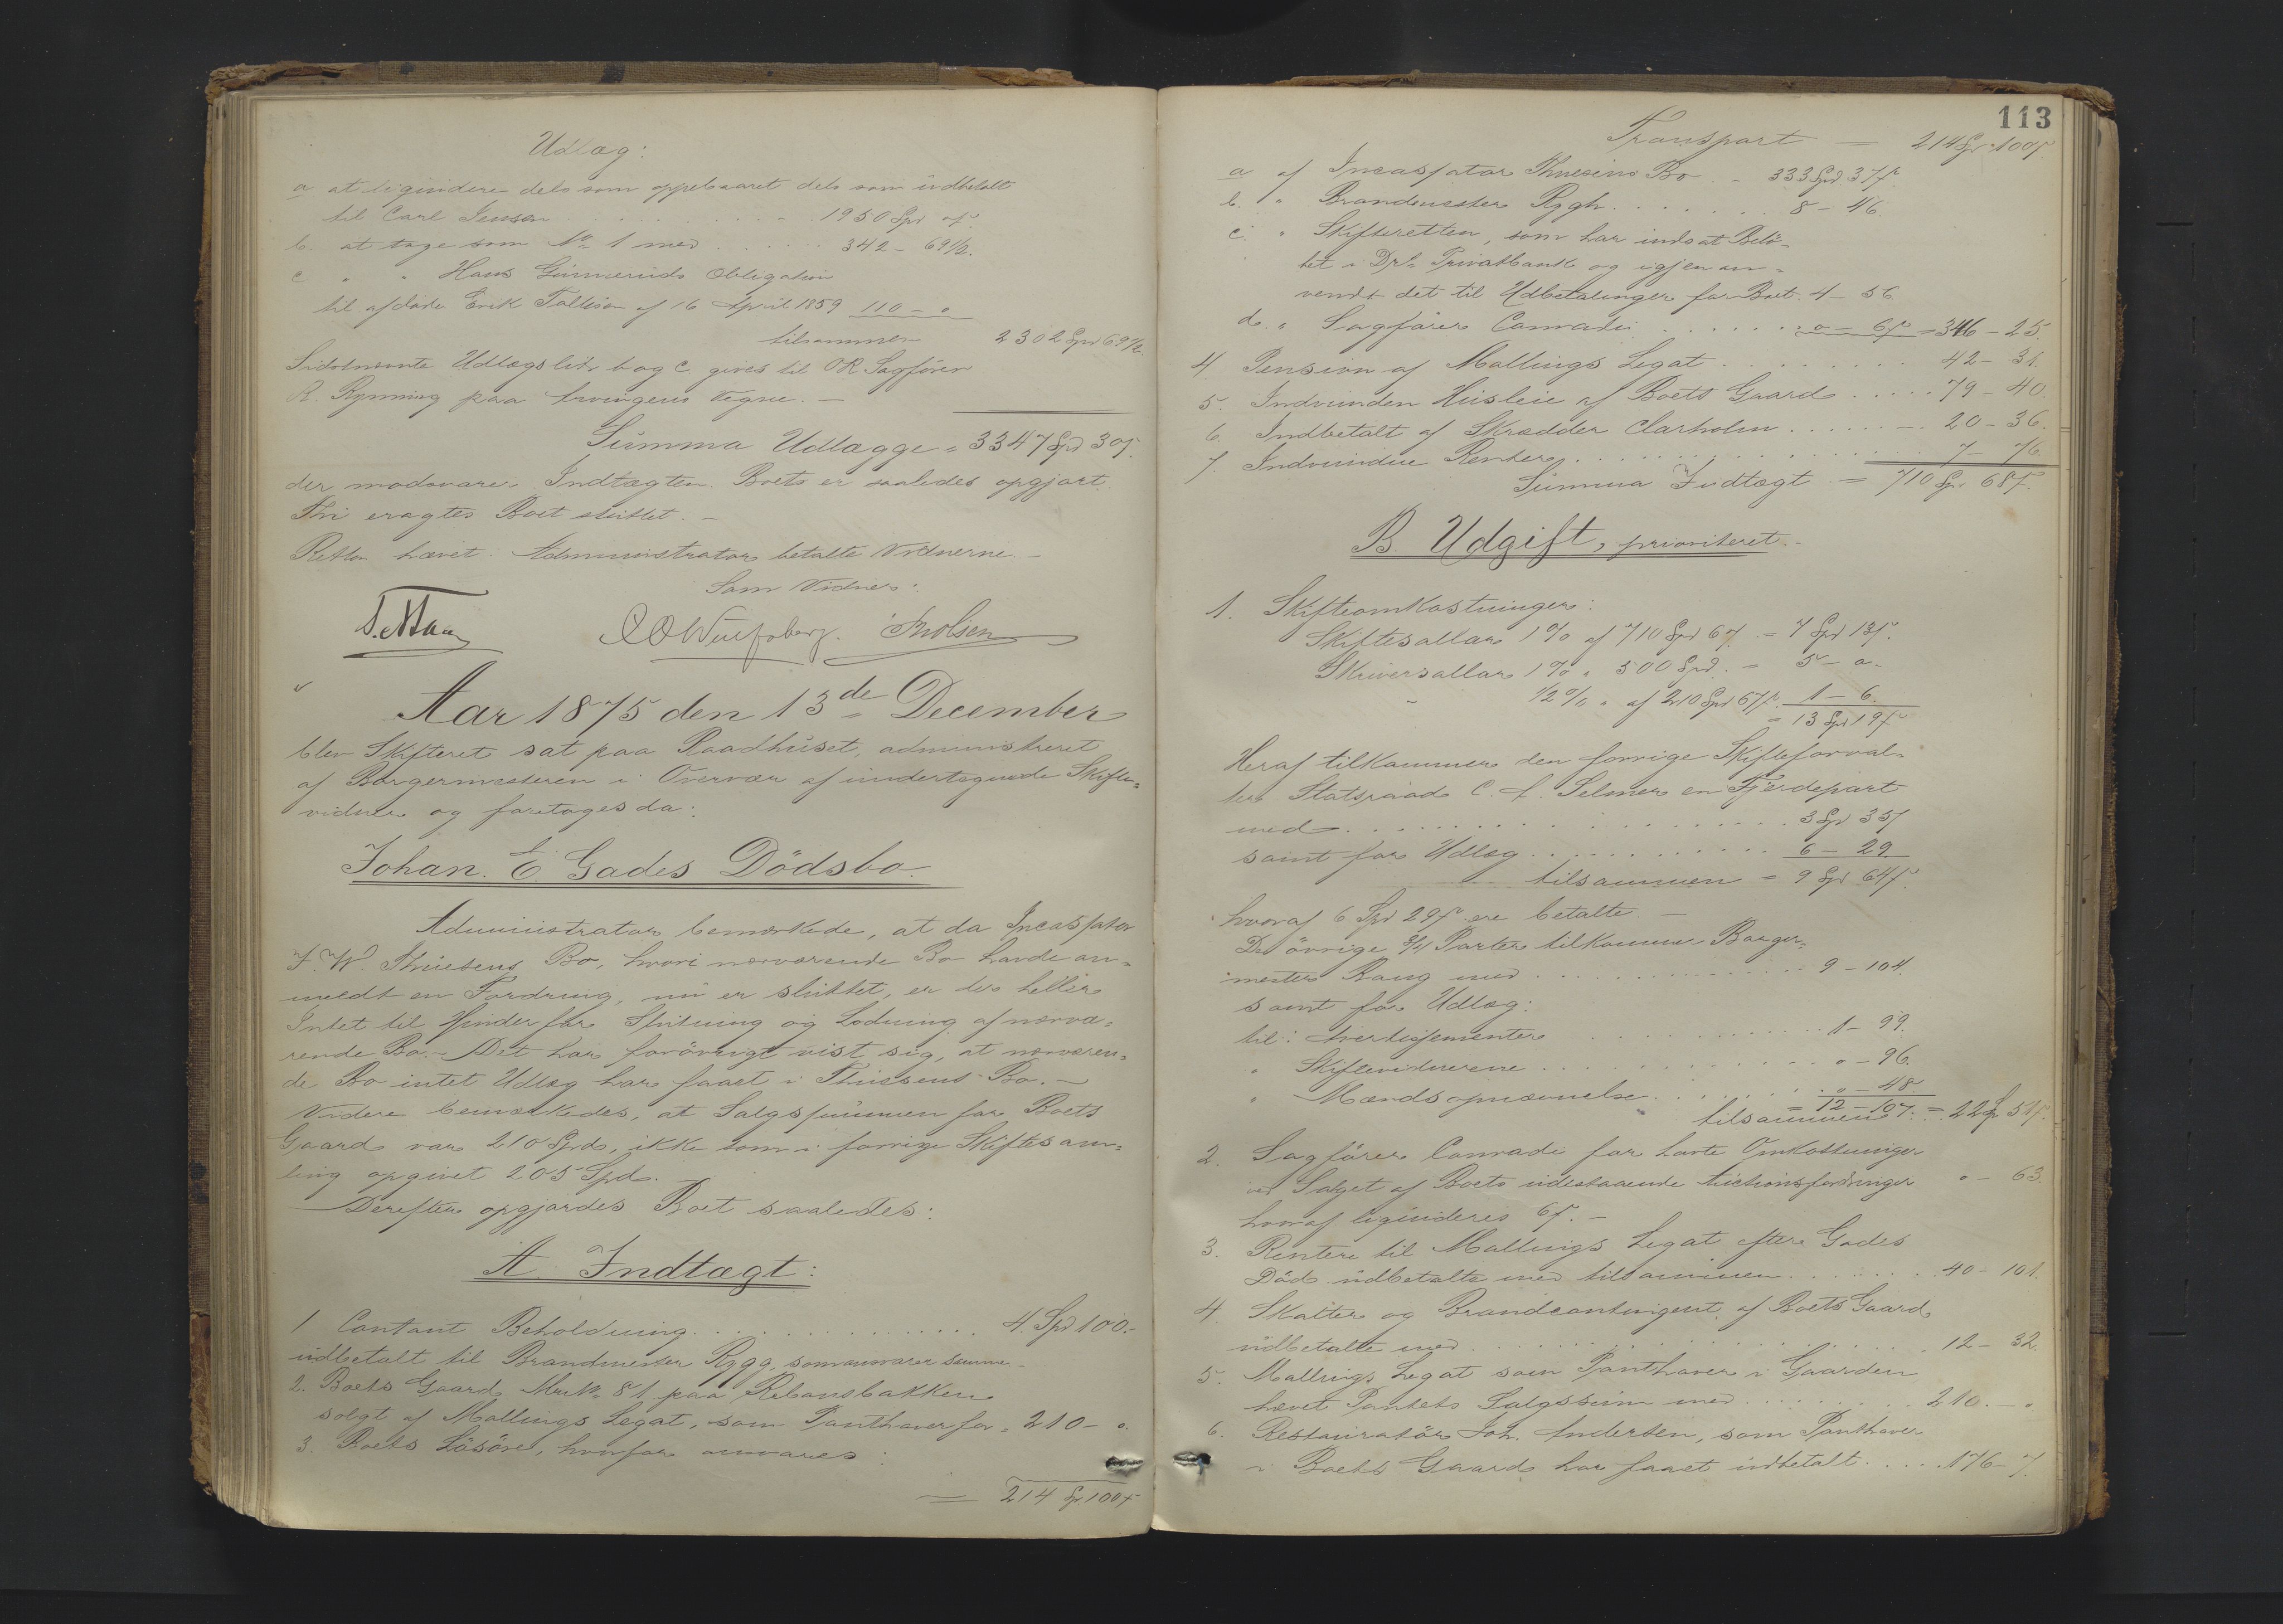 Udlæg:
a at liqvidere dels som oppebaaret dels som indbetalt
til Carl Jensen . . . . . . . . . . 1950 Spd
b. at tage som No 1 med . . . . . . 342 - 69½.
c " " Hans Gunneruds Obligation
til afdøde Erik Tollefsen af 16 April 1859 110 - "
tilsammen 2302 Spd 69½
Sidstnævnte Udlægs litr. b og c. gives til OR Sagfører
R. Rynning paa Arvingens Vegne. —
Summa Udlægge = 3347 Spd 30ß.
der modsvarer Indtægten. Boets er saaledes opgjort.
Thi eragtes Boet sluttet. —
Retten hævet. Administrator betalte Vidnerne. —
Som Vidner:
Aar 1875 den 13de December
blev Skifteret sat paa Raadhuset, administreret
af Borgermesteren i Overvær af undertegnede Skifte-
vidner og foretoges da:
Johan. C. Gades Dödsbo.
Administrator bemærkede, at da Incassator
F. W. Thuesens Bo, hvori nærværende Bo havde an-
meldt en Fordring, nu er sluttet, er der heller
Intet til Hinder for Slutning og Lodning af nærvæ-
rende Bo. — Det har forövrigt vist sig, at nærværen-
de Bo intet Udlæg har faaet i Thuesens Bo. —
Videre bemærkedes, at Salgssummen for Boets
Gaard var 210 Spd, ikke som i forrige Skiftesam-
ling opgivet 205 Spd. —
Derefter opgjordes Boet saaledes:
A. Indtægt:
1 Contant Beholdning . . . . . . . . . . 4 Spd 100.-
udbetalt til Brandmester Rygg, som ansvarer samme -
2. Boets Gaard Mnr. 81 paa Rebansbakken
solgt af Mallings Legat, som Panthaver for = 210 - o.
3. Boets Lösöre, hvorfor ansvares:
= 214 Sp. 100ß
113
Transport — 214 Spd 100ß.
a af Incassator Thuesens Bo . - 333 Spd. 37ß
b. " Brandmester Rygh . . . . . . . 8 - 46.
c. " Skifteretten, som har indsat Belö-
bet i D Privatbank og igjen an-
vendt det til Udbetalinger for Boet. 4 - 56
d. " Sagförer Conradi . . . . . . . o - 6ß = 346 - 25.
4. Pension af Mallings Legat . . . . . . . . . 42 - 31.
5. Indvunden Husleie af Boets Gaard . . . . . 79 - 40.
6. Indbetalt af Skrædder Clarholm . . . . . . 20 - 36.
7. Indvundne Renter . . . . . . . . . . . . . 7 - 76.
Summa Indtægt = 710 Sp. 68ß.
B. Udgift, prioriteret. -
1. Skifteomkostninger:
Skiftesallar 1% af 710 Spd 67. = 7 Spd 13ß.
Skriversallar 1% " 500 Spd. = 5 - o.
" ½% " af 210 Spd 67ß. 1 - 6.
= 13 Spd 19ß
Heraf tilkommer den forrige Skifteforval-
ter Statsraad C. A. Selmer en Fjerdepart
med . . . . . . . . . . . . . . . . . . 3 Spd 35ß
samt for Udlæg . . . . . . . . . . . 6 - 29.
tilsammen = 9 Spd 64ß.
hvoraf 6 Spd 29ß ere betalte. —
De övrige ¾ Parter tilkommer Borger-
mester Bang med . . . . . . . . . . . . 9 - 104.
samt for Udlæg:
til: Avertissementer . . . . . . . . . . 1 - 99.
" Skiftevidnerne . . . . . . . . . . . . o - 96.
" Mændsopnævnelse . . . . . . . . . o - 48.
tilsammen = 12 - 107. = 22 Sp. 51ß.
2. Sagförer Conradi for havte Omkostninger
ved Salget af Boets udestaaende Auctionsfordringer o - 63.
hvoraf liqvideres 6ß. —
3. Renter til Mallings Legat efter Gades
Död udbetalte med tilsammen . . . . . . . 40 - 101.
4. Skatter og Brandcontingent af Boets Gaard
udbetalte med . . . . . . . . . . . . . . . . 12 - 32.
5. Mallings Legat som Panthaver i Gaarden
hævet Pantets Salgssum med . . . . . . . . 210. - o
6. Restauratör Joh. Andersen, som Panthaver
i Boets Gaard har faaet udbetalt . . . . . 176 - 7.